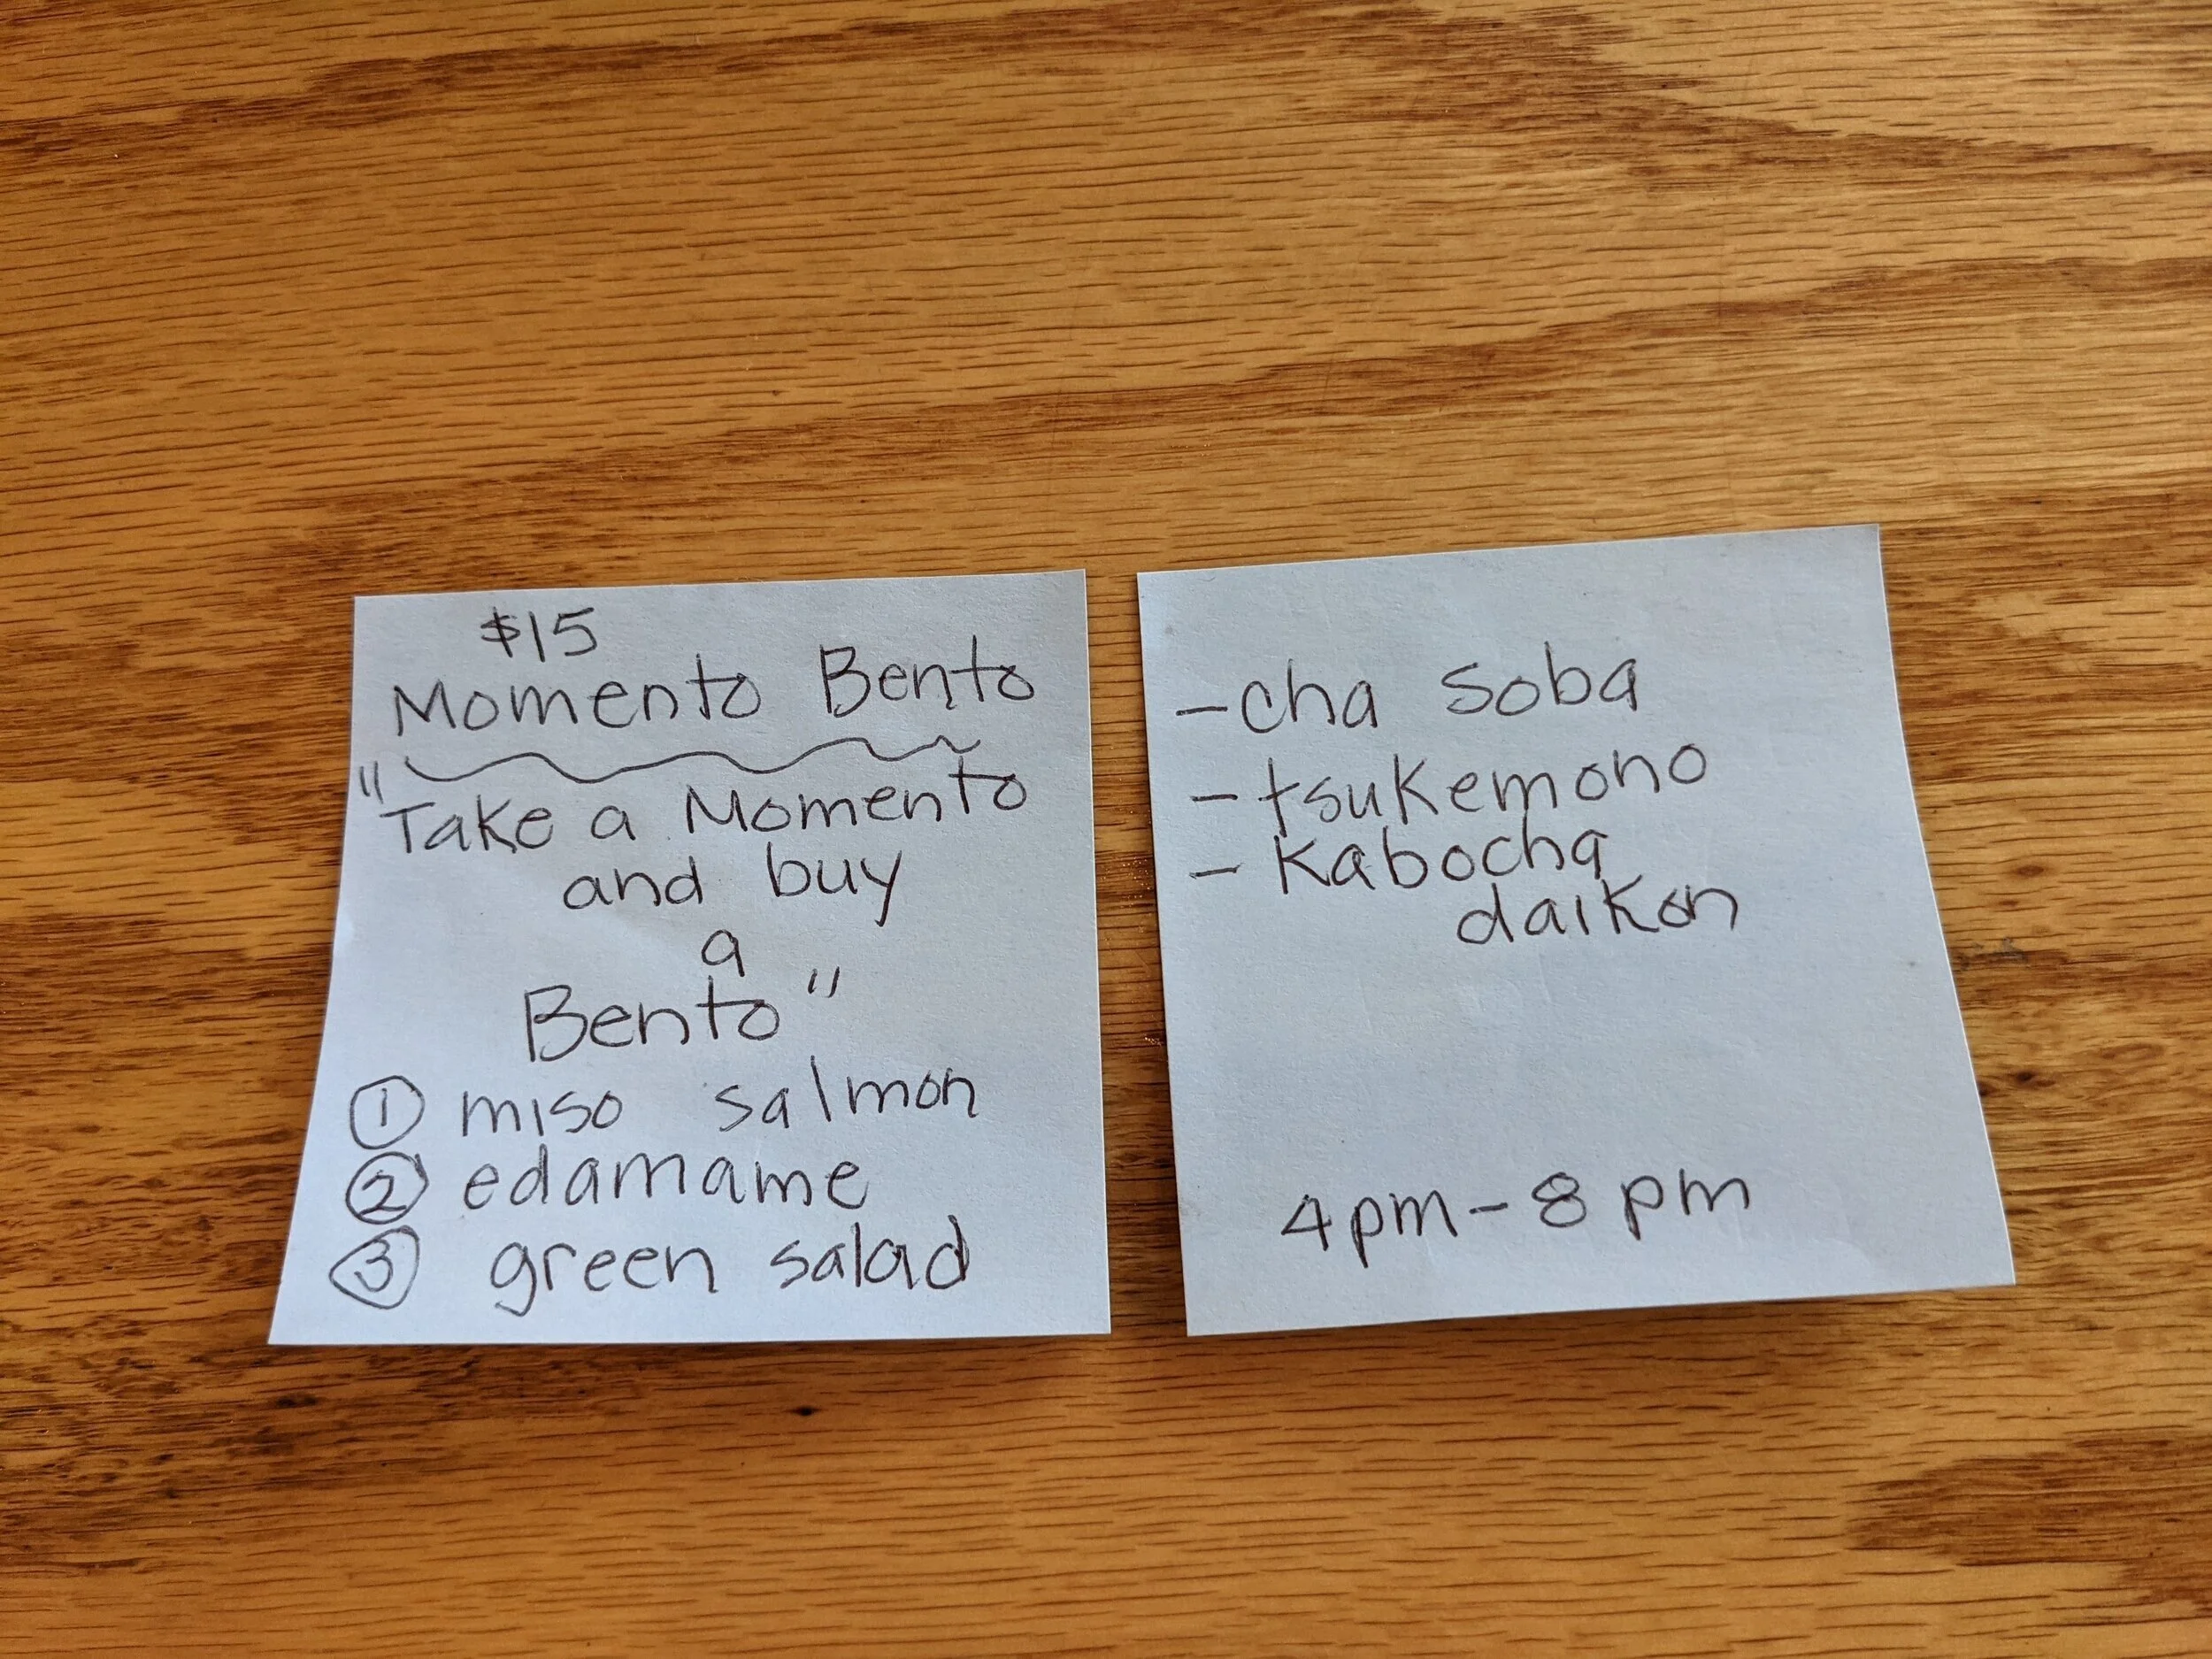 $15
Momento Bento
"Take a Momento
and buy
a
Bento"
① miso salmon
② edamame
③ green salad
- cha soba
- tsukemono
- Kabocha
daikon
4pm - 8 pm